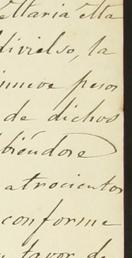 ettaria esta
divielso, la
inueve pesos
de dichos
biéndose
atrocientos
conforme
favor de